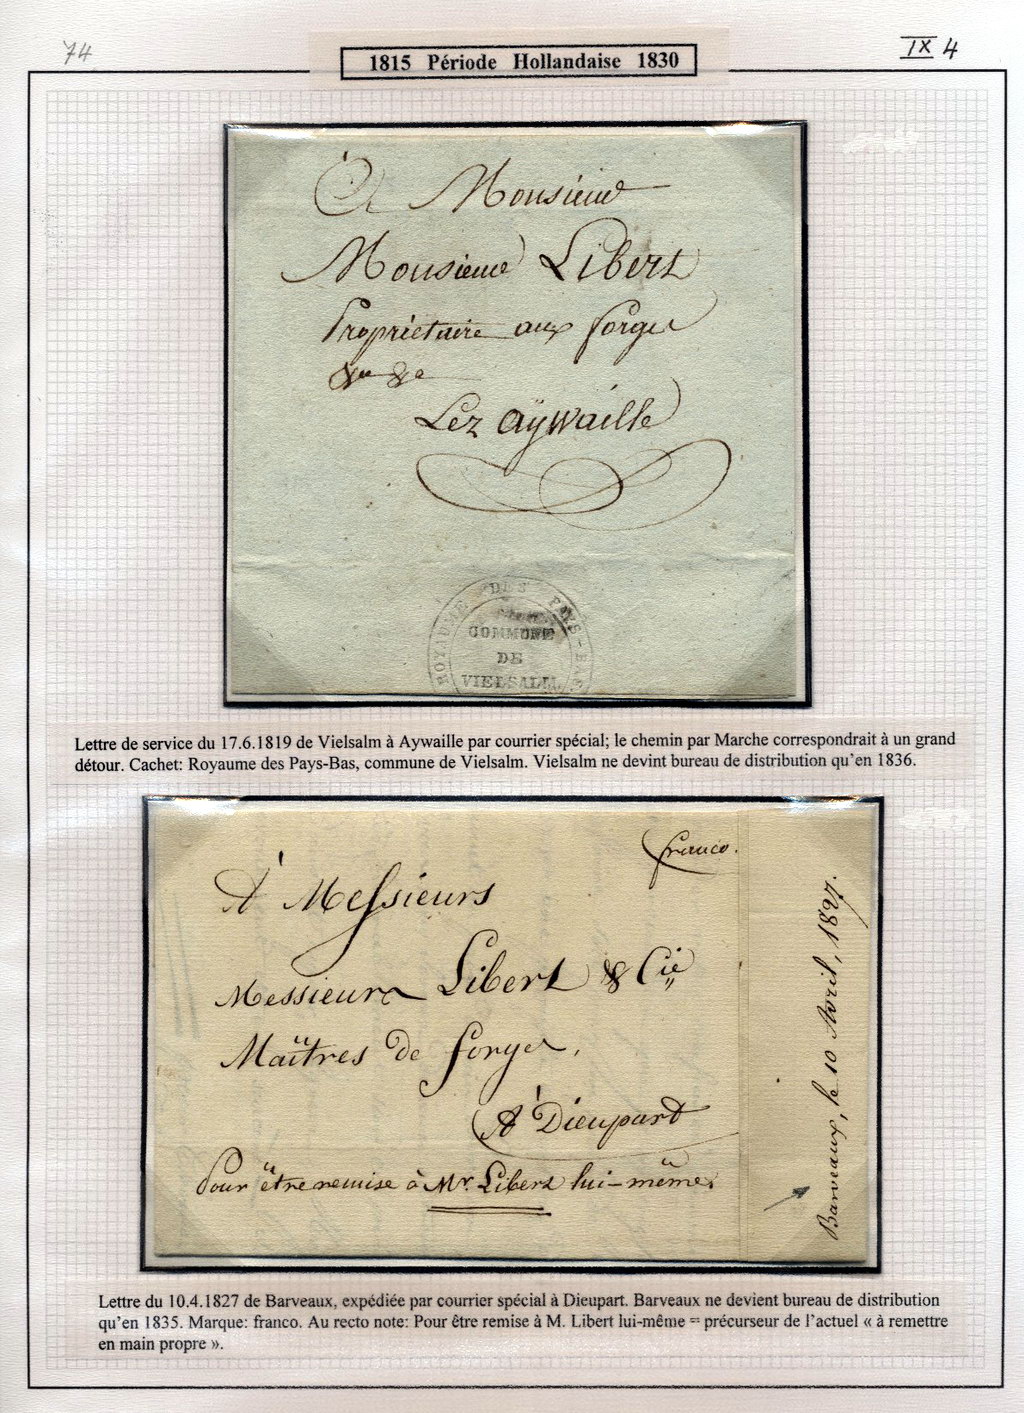 74
IX 4
1815 Période Hollandaise 1830
À Monsieur
Monsieur Libert
Propriétaire aux forges
Lez aÿwaille
ROYAUME DES PAYS-BAS
COMMUNE
DE
VIELSALM
Lettre de service du 17.6.1819 de Vielsalm à Aywaille par courrier spécial; le chemin par Marche correspondrait à un grand
détour. Cachet: Royaume des Pays-Bas, commune de Vielsalm. Vielsalm ne devint bureau de distribution qu'en 1836.
franco.
À Messieurs
Messieurs Libert & Cie
Maîtres de forges,
À Dieupart
Pour être remise à Mr. Libert lui-même.
Barveaux, le 10 Avril, 1827.
Lettre du 10.4.1827 de Barveaux, expédiée par courrier spécial à Dieupart. Barveaux ne devient bureau de distribution
qu'en 1835. Marque: franco. Au recto note: Pour être remise à M. Libert lui-même = précurseur de l'actuel « à remettre
en main propre ».